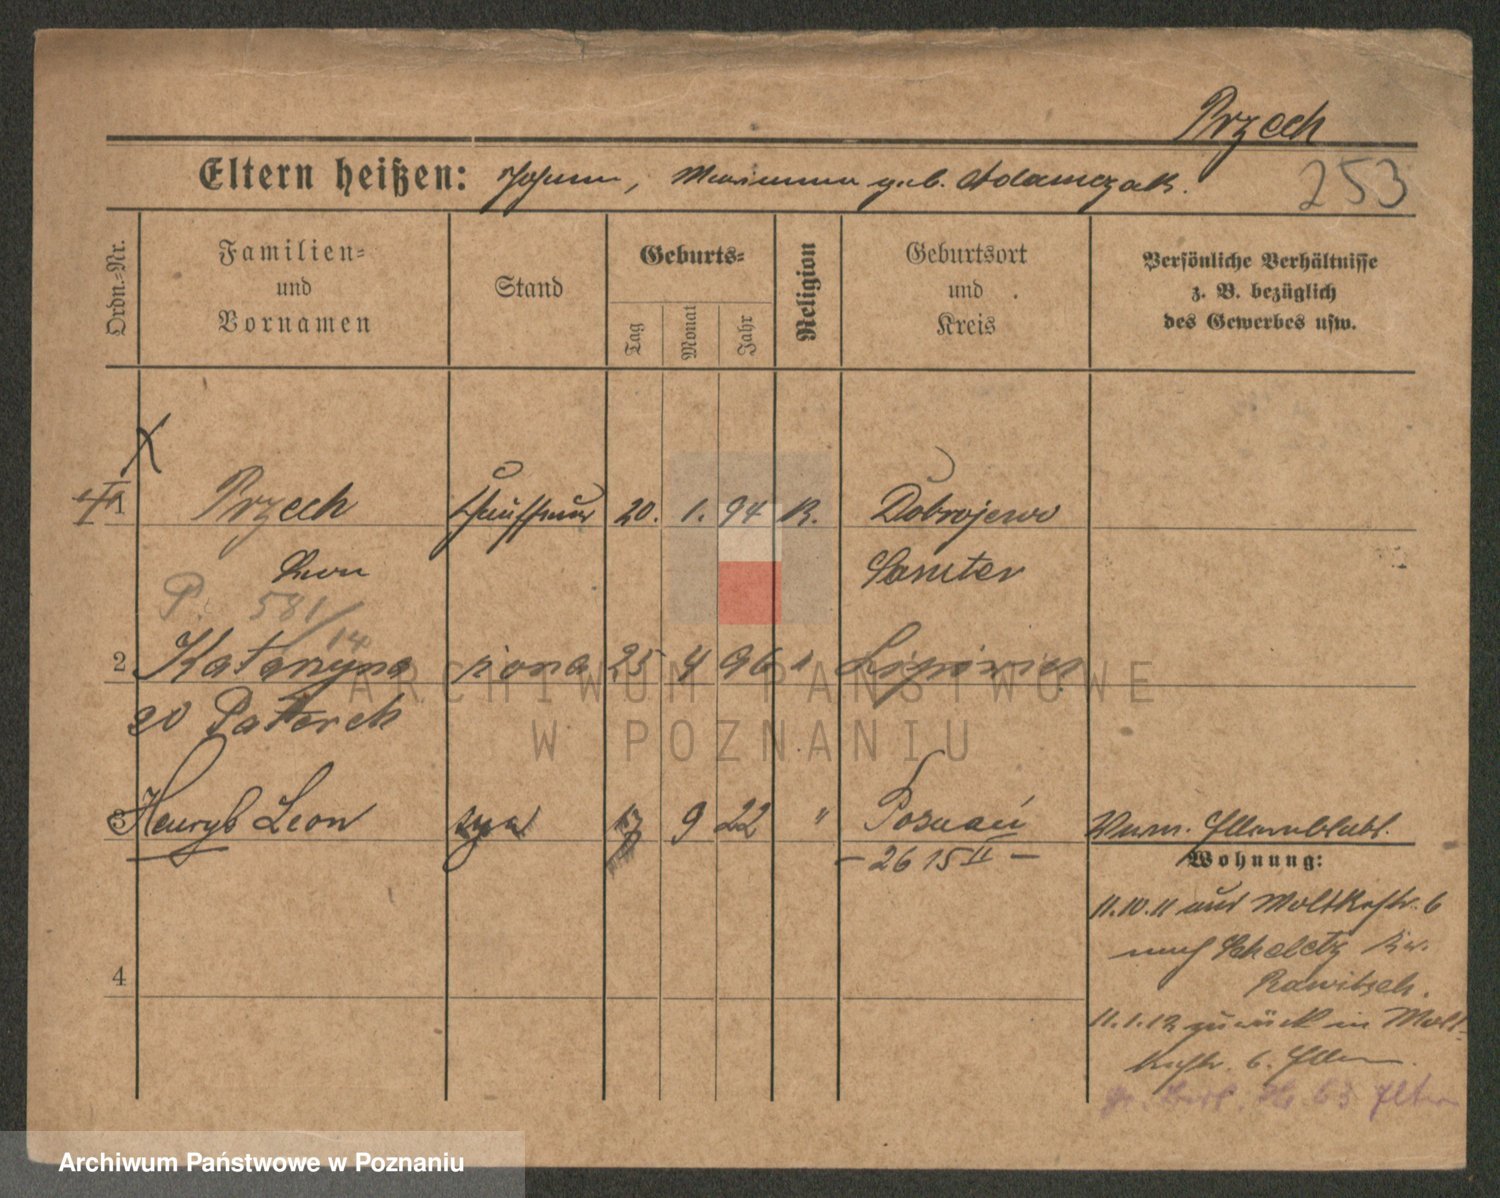 Przech
Eltern heißen: Johann, Marianna geb. Adamczak.
253
Ordn.-Nr.
Familien-
und
Vornamen
Stand
Geburts-
Tag
Monat
Jahr
Religion
Geburtsort
und
Kreis
Persönliche Verhältnisse
z. B. bezüglich
des Gewerbes usw.
1 Przech Chauffeur 20. 1. 94 K. Dobrojewo
Leon Samter
P. 581/14
2 Katarzyna żona 25 4 96 "
zd Paterek
3 Henryk Leon syn 9 22 " Poznań
- 26 15 II -
Wohnung:
11.10.11 aus Moltkestr. 6
nach Kr.
Rawitsch.
11.1.12 zurück in Molt-
kestr. 6. Eltern
4
ARCHIWUM PAŃSTWOWE
W POZNANIU
Archiwum Państwowe w Poznaniu